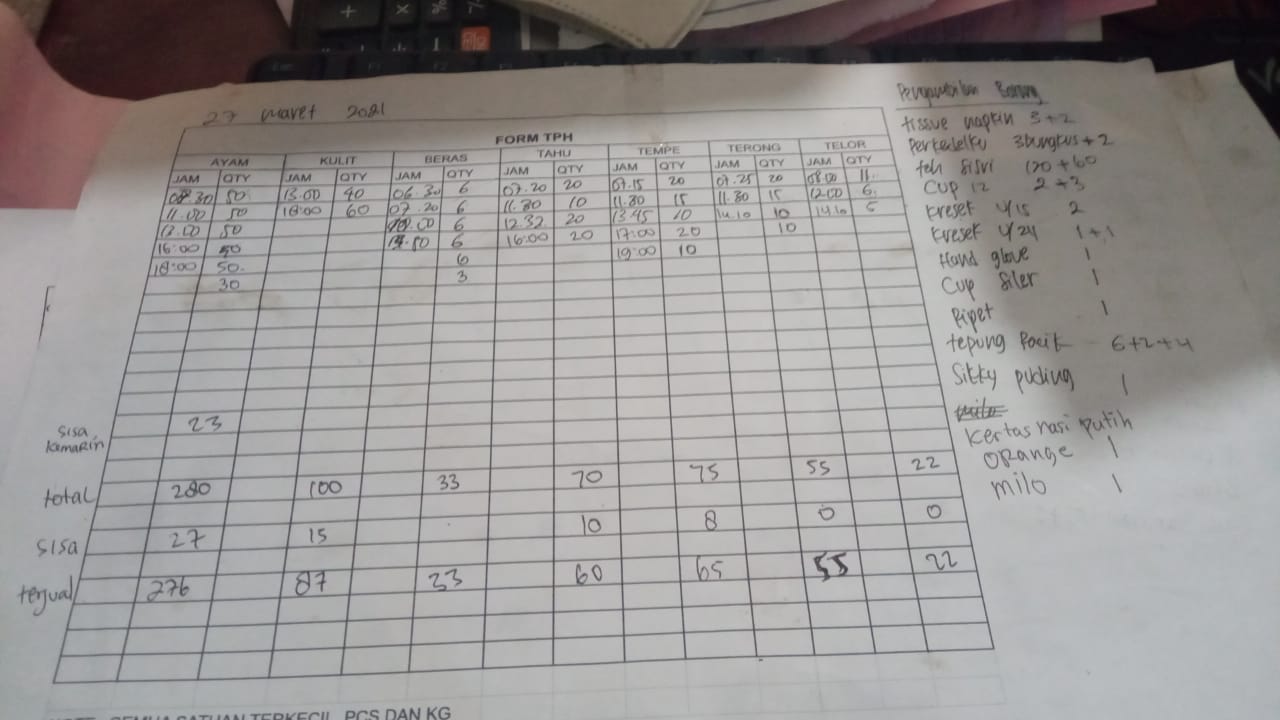 27 maret 2021
FORM TPH
AYAM KULIT BERAS TAHU TEMPE TERONG TELOR
JAM QTY JAM QTY JAM QTY JAM QTY JAM QTY JAM QTY JAM QTY
08.30 50 13.00 40 06.30 6 07.20 20 07.15 20 07.25 20 08.00 11
11.00 50 18:00 60 07.20 6 11.30 10 11.30 15 11.30 15 12.00 6
50 6 12.32 20 13.45 10 14.10 10 14.10 5
16:00 50 6 16:00 20 17:00 20 10
18:00 50 6 19:00 10
30 3
sisa kemarin 23
total 280 100 33 70 75 55 22
sisa 27 15 10 8 0 0
terjual 276 87 33 60 65 55 22
Pengambilan Barang
tissue napkin 3+2
Perkedelku 3bungkus+2
teh Sisri 120+60
Cup 12 2+3
kresek u/15 2
kresek u/24 1+1
Hand glove 1
Cup Siler 1
Pipet 1
tepung Racik 6+2+4
Sikky puding 1
kertas nasi putih
orange 1
milo 1
SEMUA SATUAN TERKECIL PCS DAN KG